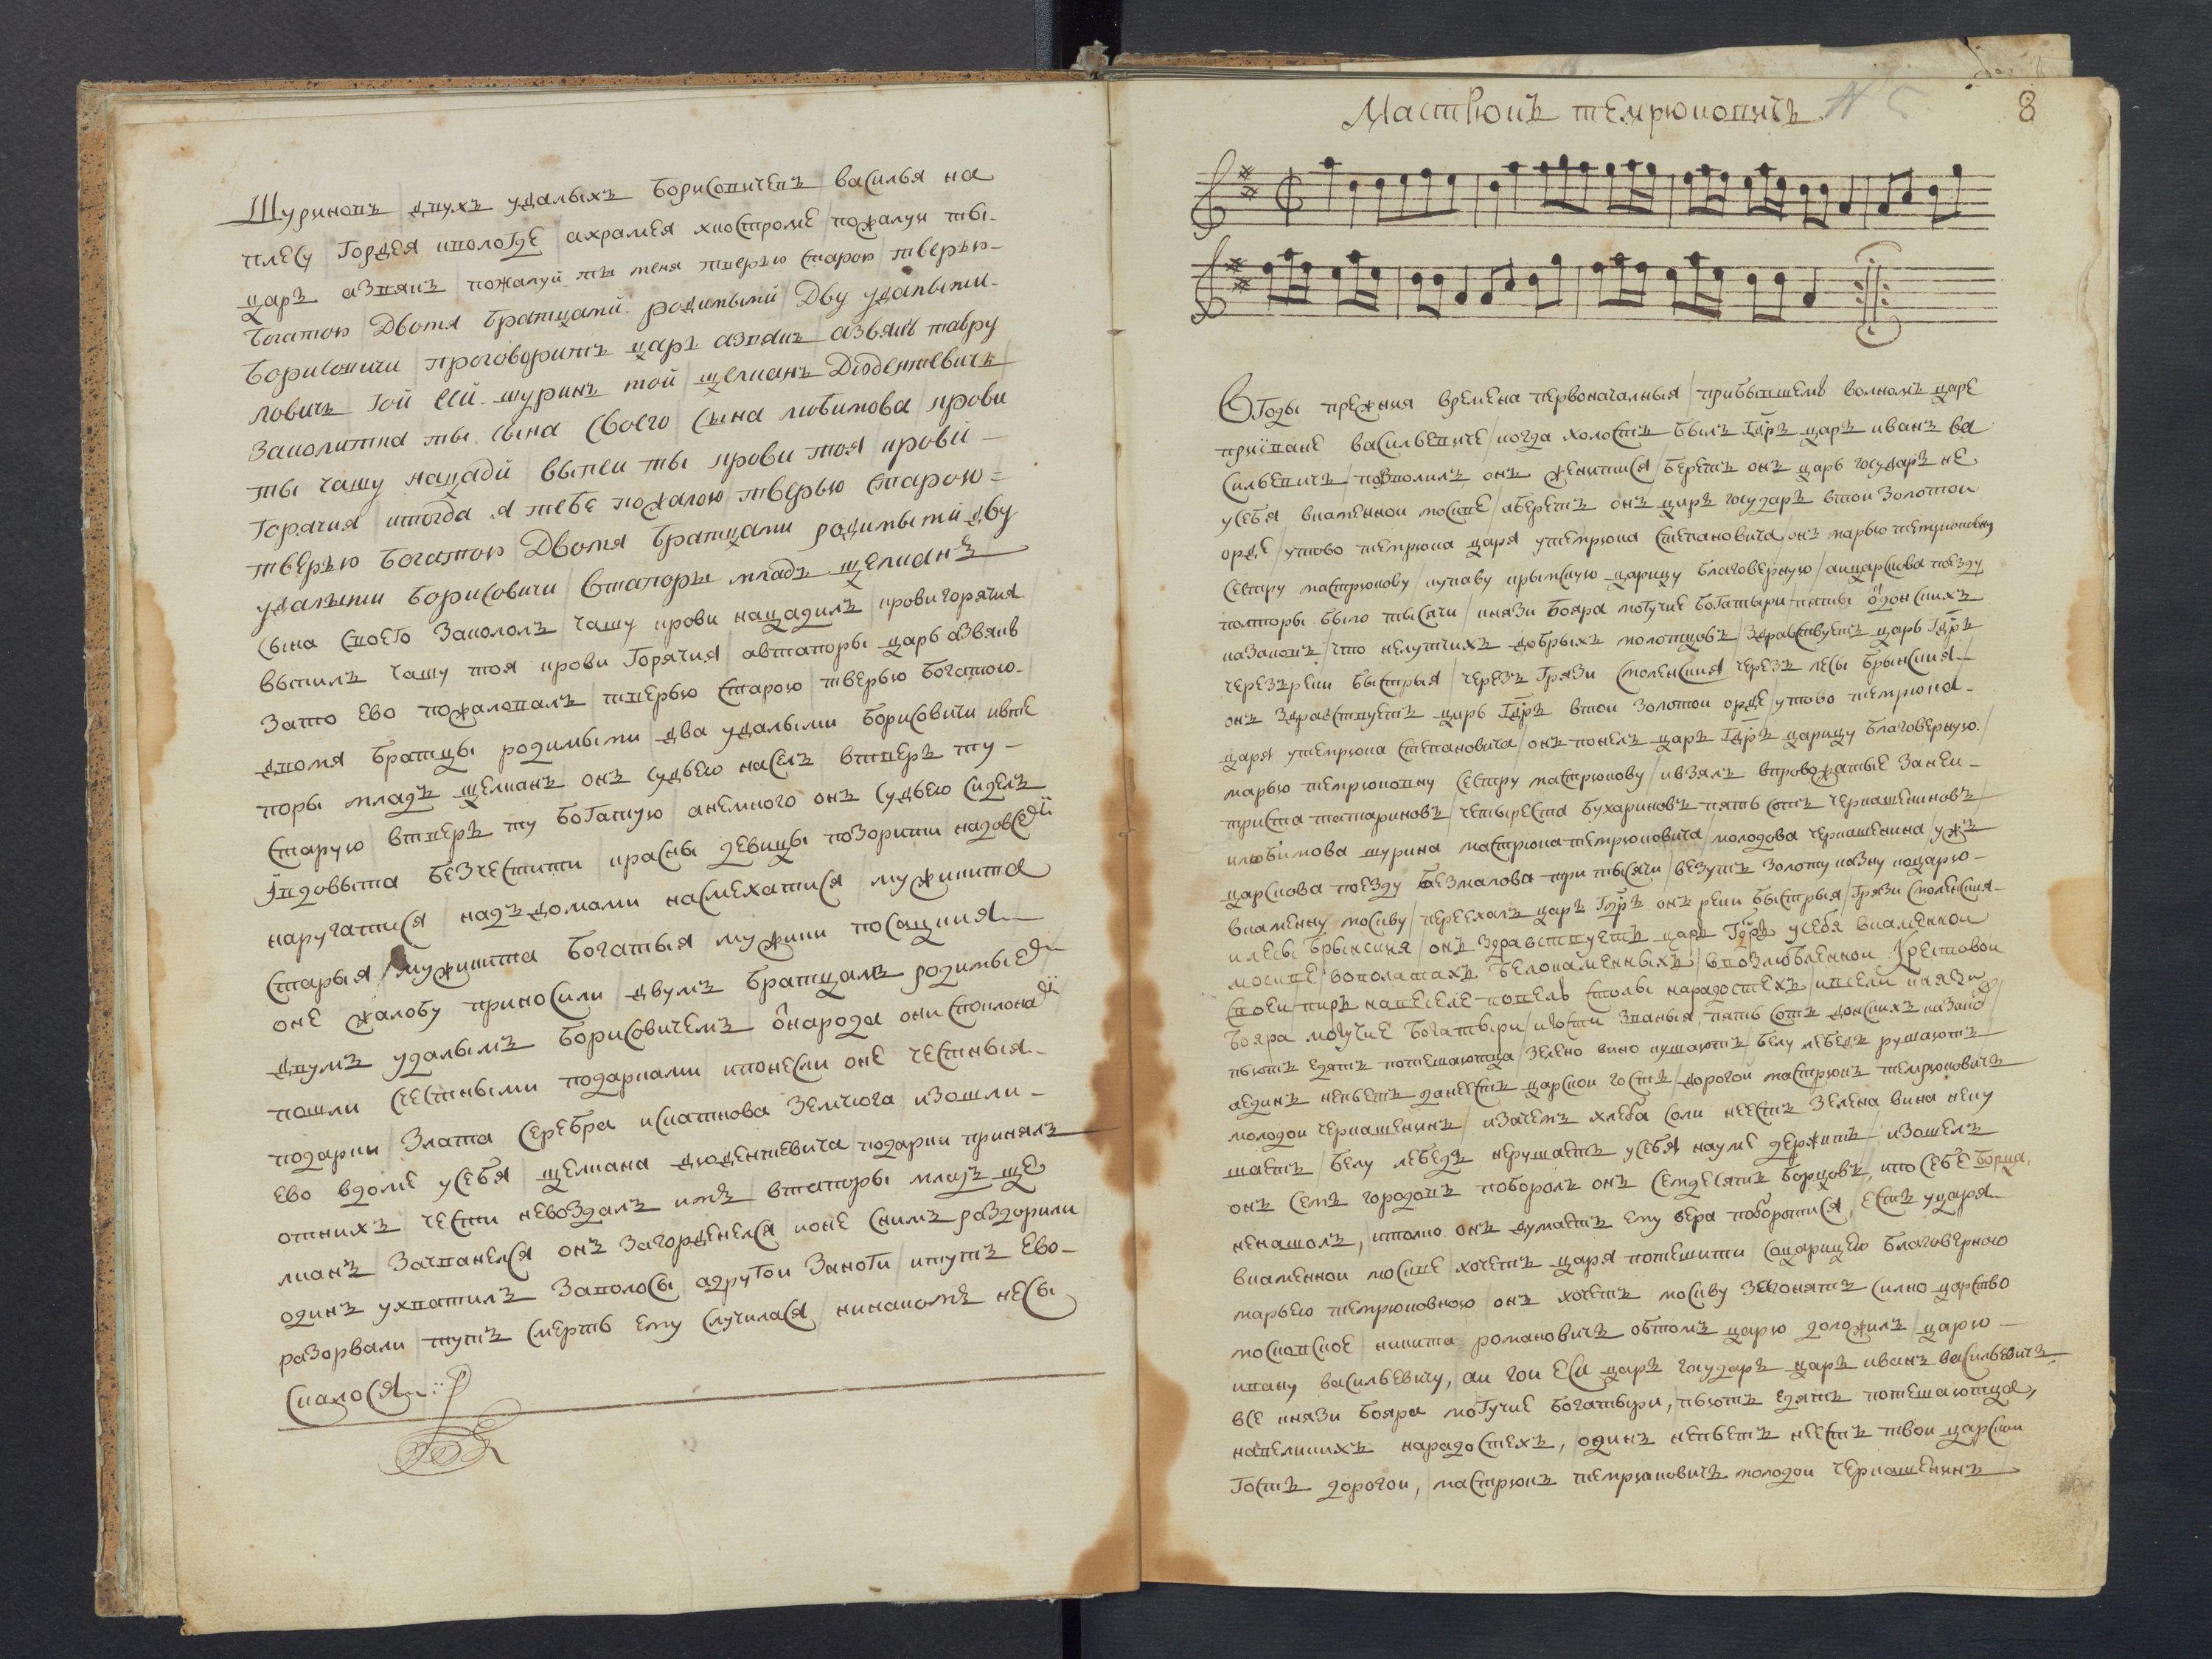 Шуриновъ двухъ удалыхъ борисовичевъ василья на
плесу гордея квологде ахрамея кностроме пожалуи ты
царь азвякъ пожалуй ты меня тверью старою тверью
богатою двомя братцами родимыми дву удалыми
борисовичи проговоритъ царь азвякъ азвякъ тавру
ловичь гой еси шуринъ мой щелканъ дюдентевичь
заколитка ты сына своего сына любимова крови
ты чашу нацади выпеи ты крови тоя крови
горячия итогда я тебе пожалою тверью старою
тверью богатою двомя братцами родимыми дву
удалыми борисовичи втапоры младъ щелканъ
сына своего закололъ чашу крови нацадилъ крови горячия
выпилъ чашу тоя крови горячия автапоры царь азвякъ
зато ево пожаловалъ тверью старою тверью богатою
двомя братцы родимыми два удалыми борисовичи ивте
поры младъ щелканъ онъ судьею населъ втверь ту
старую втверь ту богатую анемного онъ судьею сиделъ
ївдовыта безчестити красны девицы позорити надовседї
наругатися надъ домами насмехатися мужикита
старыя мужикита богатыя мужики посацкия
оне жалобу приносили двумъ братцамъ родимыеди
двумъ удалымъ борисовичемъ онарода они споклонадї
пошли счестными подарками ипонесли оне честныя
подарки злата серебра искатнова земчюга изошли
ево вдоме усебя щелкана дюдентевича подарки принялъ
отнихъ чести невоздалъ имъ втапоры младъ ще
лканъ зачванелся онъ загорденелся ионе снимъ раздорили
одинъ ухватилъ заволосы адругои заноги итутъ ево
разорвали тутъ смерть ему случилася нинакомъ несы
скалося
Мастрюкъ темрюковичь № 5 8
Вгоды прежния времена первоначалныя прибывшемъ волномъ царе
приїване васильевиче когда холостъ былъ гдрь царь иванъ ва
сильевичь позволилъ онъ женитися беретъ онъ царь государь не
усебя вкаменнои москве аберетъ онъ царь государь втои золотои
орде утово темрюка царя утемрюка степановича онъ марью темрюковну
сестру мастрюкову купаву крымскую царицу благоверную аицарскова поезду
полторы было тысячи князи бояра могучие богатыри пятьсот донскихъ
казаковъ что нелутчихъ добрыхъ молотцовъ здравствуетъ царь гдрь
черезъ реки быстрыя черезъ грязи смоленския черезъ лесы брынския
онъ здравствуетъ царь гдрь втои золотои орде утово темрюка
царя утемрюка степановича онъ понелъ царь гдрь царицу благоверную
марью темрюковну сестру мастрюкову ивзялъ впровожатые занеи
триста татариновъ четыреста бухариновъ пять сотъ черкашениновъ
илюбимова шурина мастрюка темрюковича молодова черкашенина ужъ
царскова поезду безмалова три тысячи везутъ золоту казну коцарю
вкаменну москву переехалъ царь гдрь онъ реки быстрыя грязи смоленския
илесы брынския онъ здравствуетъ царь гдрь усебя вкаменнои
москве вополатахъ белокаменныхъ ввозлюбленнои крестовои
своеи пиръ навеселе повелъ столы нарадостехъ ивсели князи
бояра могучие богатыри игости званыя пять сотъ донскихъ казаков
пьютъ едятъ потешаютца зелено вино кушаютъ белу лебедь рушаютъ
аединъ непьетъ данеестъ царскои гость дорогои мастрюкъ темрюковичь
молодои черкашенинъ изачемъ хлеба соли неестъ зелена вина неку
шаетъ белу лебедь нерушаетъ усебя науме держитъ изошелъ
онъ семь городовъ поборолъ онъ семдесятъ борцовъ ипо себе борца
ненашолъ, итолко онъ думаетъ ему вера поборотися, есть уцаря
вкаменнои москве хочетъ царя потешити соцарицею благоверною
марьею темрюковною онъ хочетъ москву загонятъ силно царство
московское никита романовичь обтомъ царю доложилъ царю
ивану васильевичу, аи гои еси царь государь царь иванъ васильевичь
все князи бояра могучие богатыри, пьютъ едятъ потешаютца,
навеликихъ нарадостехъ, одинъ непьетъ неестъ твои царскои
гость дорогои, мастрюкъ темрюковичь молодои черкашенинъ